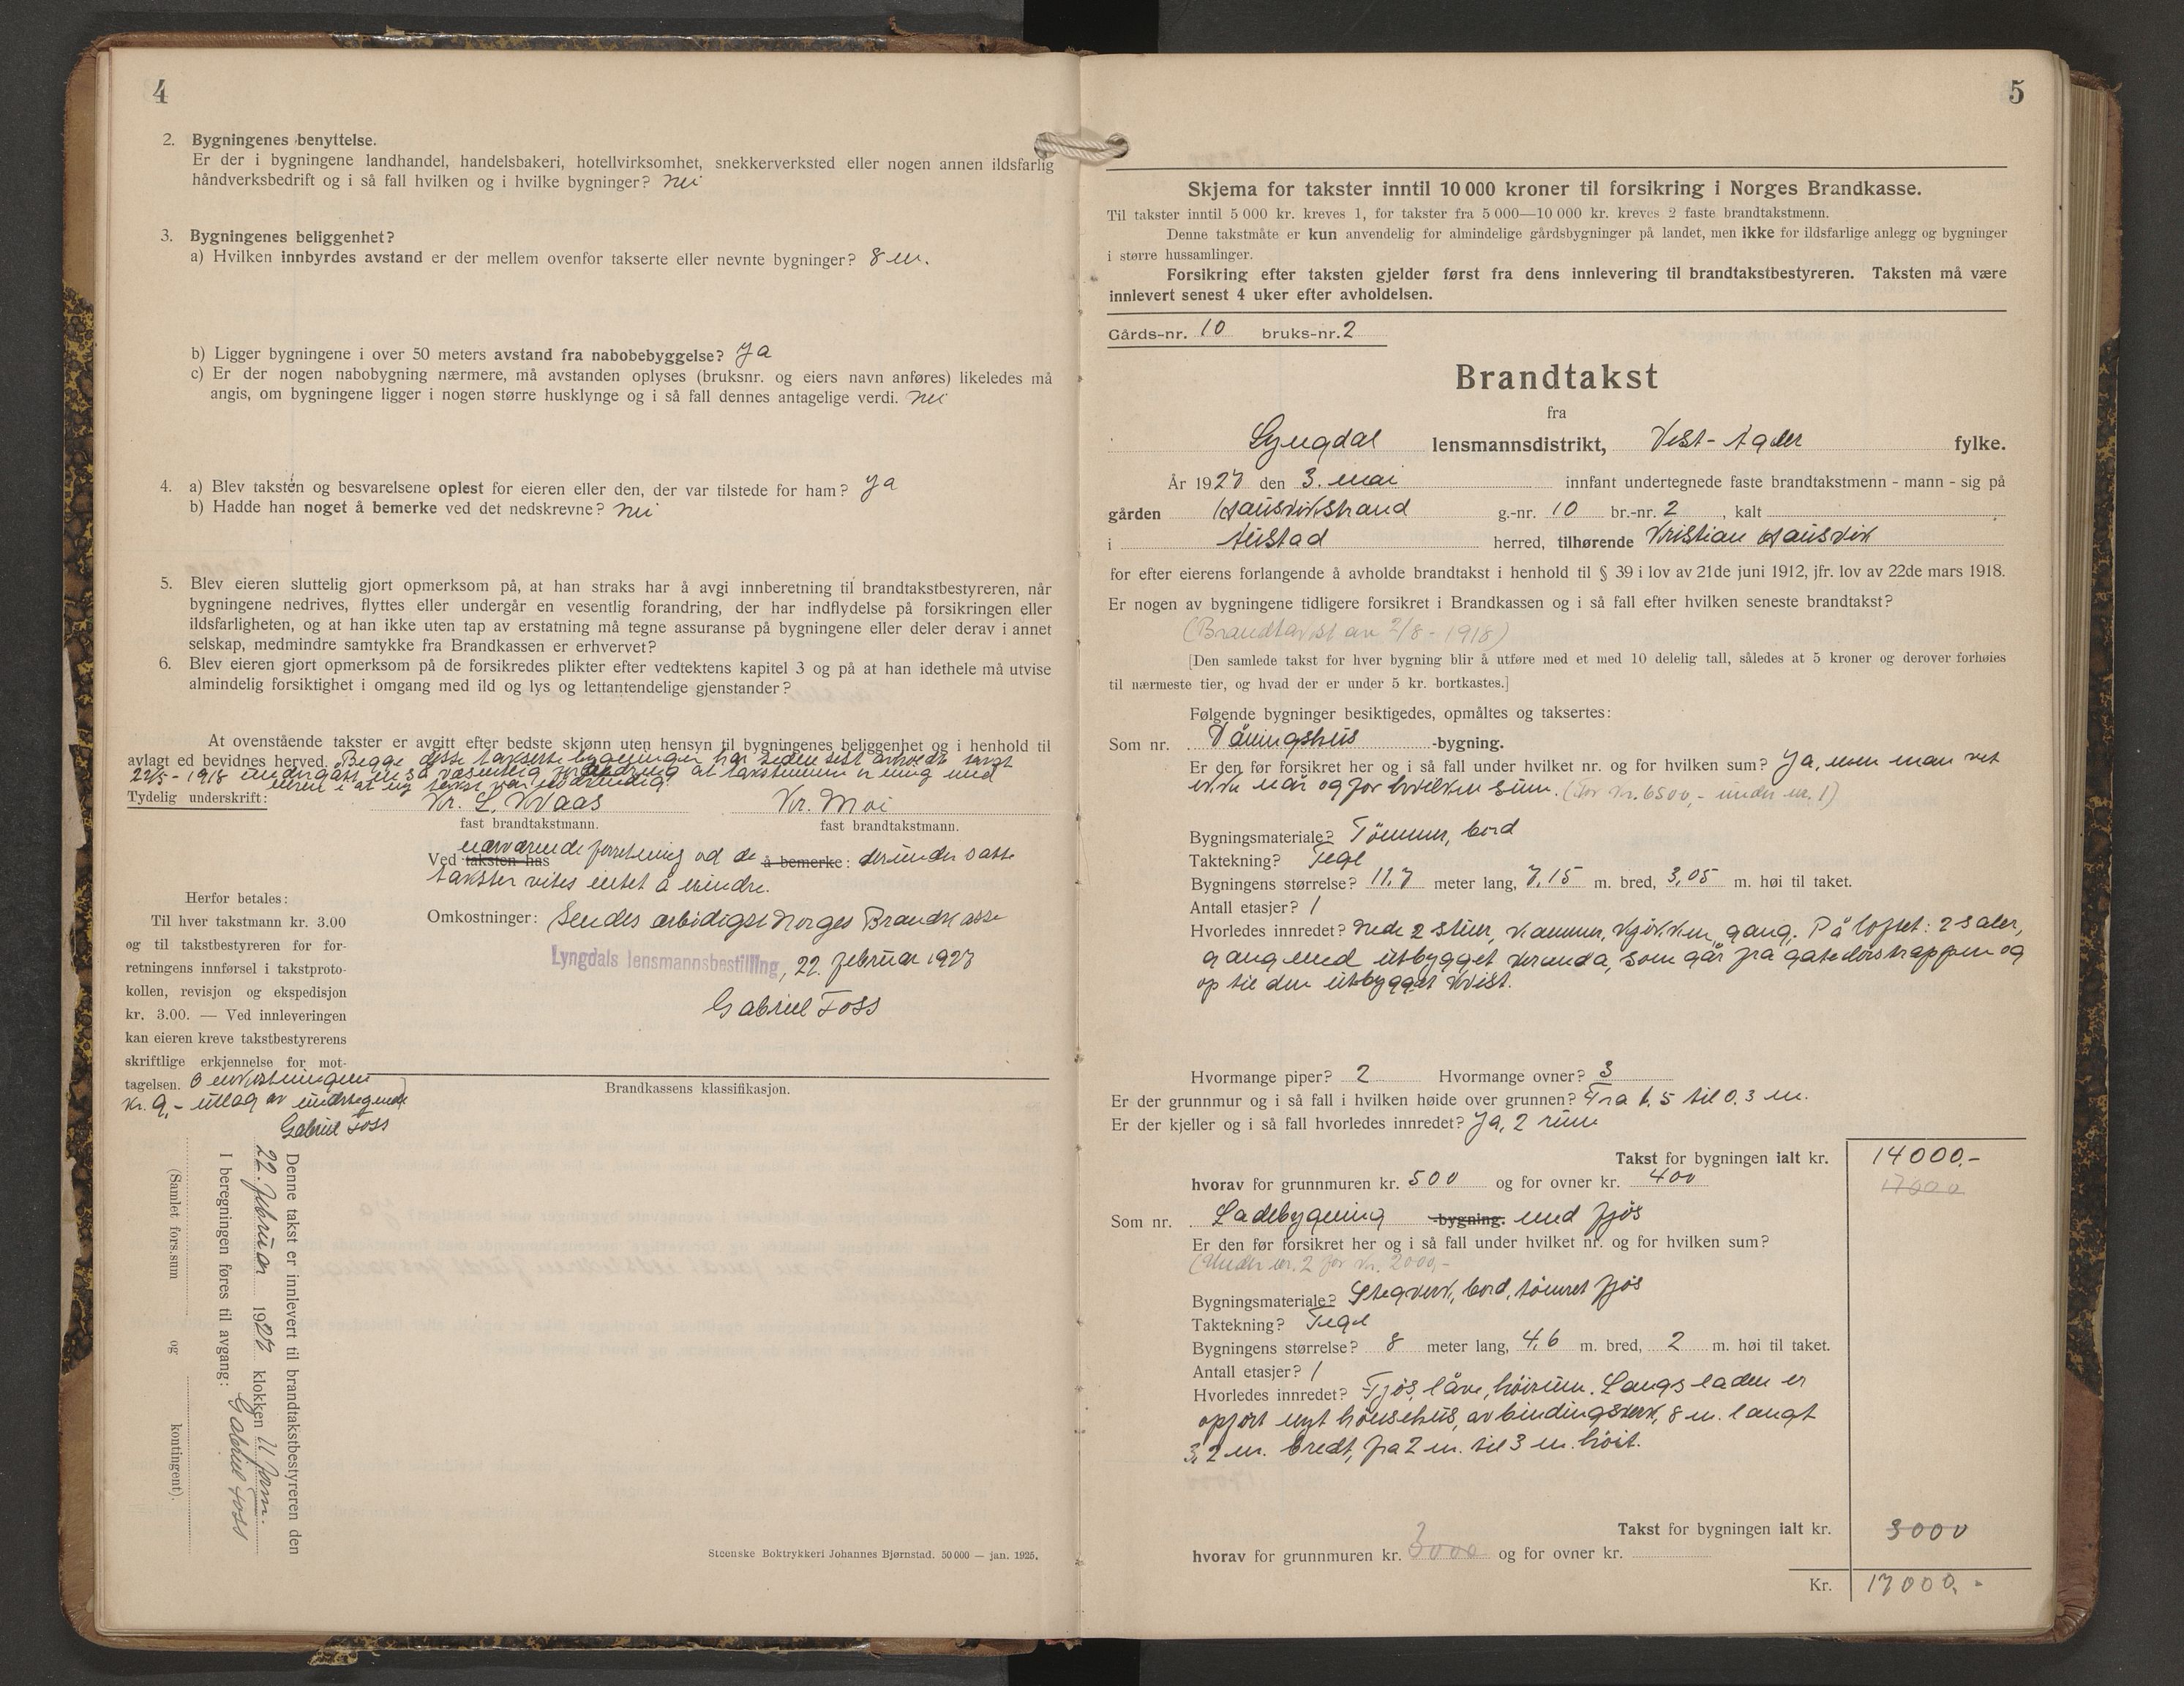 4
2. Bygningenes benyttelse.
Er der i bygningene landhandel, handelsbakeri, hotellvirksomhet, snekkerverksted eller nogen annen ildsfarlig
håndverksbedrift og i så fall hvilken og i hvilke bygninger? nei
3. Bygningenes beliggenhet?
a) Hvilken innbyrdes avstand er der mellem ovenfor takserte eller nevnte bygninger? 8 m.
b) Ligger bygningene i over 50 meters avstand fra nabobebyggelse? Ja
c) Er der nogen nabobygning nærmere, må avstanden oplyses (bruksnr. og eiers navn anføres) likeledes må
angis, om bygningene ligger i nogen større husklynge og i så fall dennes antagelige verdi. nei
4. a) Blev taksten og besvarelsene oplest for eieren eller den, der var tilstede for ham? Ja
b) Hadde han noget å bemerke ved det nedskrevne? nei
5. Blev eieren sluttelig gjort opmerksom på, at han straks har å avgi innberetning til brandtakstbestyreren, når
bygningene nedrives, flyttes eller undergår en vesentlig forandring, der har indflydelse på forsikringen eller
ildsfarligheten, og at han ikke uten tap av erstatning må tegne assuranse på bygningene eller deler derav i annet
selskap, medmindre samtykke fra Brandkassen er erhvervet?
6. Blev eieren gjort opmerksom på de forsikredes plikter efter vedtektens kapitel 3 og på at han idethele må utvise
almindelig forsiktighet i omgang med ild og lys og lettantendelige gjenstander?
At ovenstående takster er avgitt efter bedste skjønn uten hensyn til bygningenes beliggenhet og i henhold til
avlagt ed bevidnes herved. Begge disse takserte bygninger har siden sist avholdt takst
22/5 - 1918 undergått en så væsentlig forandring at takstmenn er enig med
eieren i at ny takst var nødvendig.
Tydelig underskrift: Kr. L. Kvaas Kr. Moi
fast brandtakstmann. fast brandtakstmann.
nærværende forretning od de
Ved taksten has å bemerke: derunder satte
takster vites intet å erindre.
Omkostninger: Sendes ærbødigst Norges Brandkasse
Lyngdals lensmannsbestilling, 22. februar 1927
Gabriel Foss
Herfor betales:
Til hver takstmann kr. 3.00
og til takstbestyreren for for-
retningens innførsel i takstproto-
kollen, revisjon og ekspedisjon
kr. 3.00. — Ved innleveringen
kan eieren kreve takstbestyrerens
skriftlige erkjennelse for mot-
tagelsen. Omkostningen
kr. 9,- utlagt av undertegnede
Gabriel Foss
Brandkassens klassifikasjon.
Denne takst er innlevert til brandtakstbestyreren den
22. februar 1927 klokken 11 form.
Gabriel Foss
I beregningen føres til avgang:
(Samlet fors.sum og kontingent).
Steenske Boktrykkeri Johannes Bjørnstad. 50 000 — jan. 1925.
5
Skjema for takster inntil 10 000 kroner til forsikring i Norges Brandkasse.
Til takster inntil 5 000 kr. kreves 1, for takster fra 5 000—10 000 kr. kreves 2 faste brandtakstmenn.
Denne takstmåte er kun anvendelig for almindelige gårdsbygninger på landet, men ikke for ildsfarlige anlegg og bygninger
i større hussamlinger.
Forsikring efter taksten gjelder først fra dens innlevering til brandtakstbestyreren. Taksten må være
innlevert senest 4 uker efter avholdelsen.
Gårds-nr. 10 bruks-nr. 2
Brandtakst
fra
Lyngdal lensmannsdistrikt, Vest-Agder fylke.
År 1927 den 3. mai innfant undertegnede faste brandtakstmenn - mann - sig på
gården Hausvikstrand g.-nr. 10 br.-nr. 2, kalt
i Austad herred, tilhørende Kristian Hausvik
for efter eierens forlangende å avholde brandtakst i henhold til § 39 i lov av 21de juni 1912, jfr. lov av 22de mars 1918.
Er nogen av bygningene tidligere forsikret i Brandkassen og i så fall efter hvilken seneste brandtakst?
(Brandtakst av 2/8 - 1918)
[Den samlede takst for hver bygning blir å utføre med et med 10 delelig tall, således at 5 kroner og derover forhøies
til nærmeste tier, og hvad der er under 5 kr. bortkastes.]
Følgende bygninger besiktigedes, opmåltes og taksertes:
Som nr. Våningshus -bygning.
Er den før forsikret her og i så fall under hvilket nr. og for hvilken sum? Ja, men man vet
ikke når og for hvilken sum. (For kr. 6500,- under nr. 1)
Bygningsmateriale? Tömmer, bord
Taktekning? Tegl
Bygningens størrelse? 11,7 meter lang, 7,15 m. bred, 3,05 m. høi til taket.
Antall etasjer? 1
Hvorledes innredet? Nede 2 stuer, kammer, kjökken, gang. På loftet: 2 saler,
gang med utbygget veranda, som går fra gatedörstrappen og
op til den utbygget kvist.
Hvormange piper? 2 Hvormange ovner? 3
Er der grunnmur og i så fall i hvilken høide over grunnen? Fra 1,5 til 0,3 m.
Er der kjeller og i så fall hvorledes innredet? Ja, 2 rum
Takst for bygningen ialt kr. 14000,-
hvorav for grunnmuren kr. 500 og for ovner kr. 400 17000
Som nr. Ladebygning -bygning. med fjös
Er den før forsikret her og i så fall under hvilket nr. og for hvilken sum?
(Under nr. 2 for kr. 2000,-
Bygningsmateriale? Stegverk, bord, tömret fjös
Taktekning? Tegl
Bygningens størrelse? 8 meter lang, 4,6 m. bred, 2 m. høi til taket.
Antall etasjer? 1
Hvorledes innredet? Fjös, låve, höirum. Langs laden er
opført nyt hönsehus, av bindingsverk, 8 m. langt
3,2 m. bredt, fra 2 m. til 3 m. höit.
Takst for bygningen ialt kr. 3000
hvorav for grunnmuren kr. 3000 og for ovner kr.
Kr. 17000,-